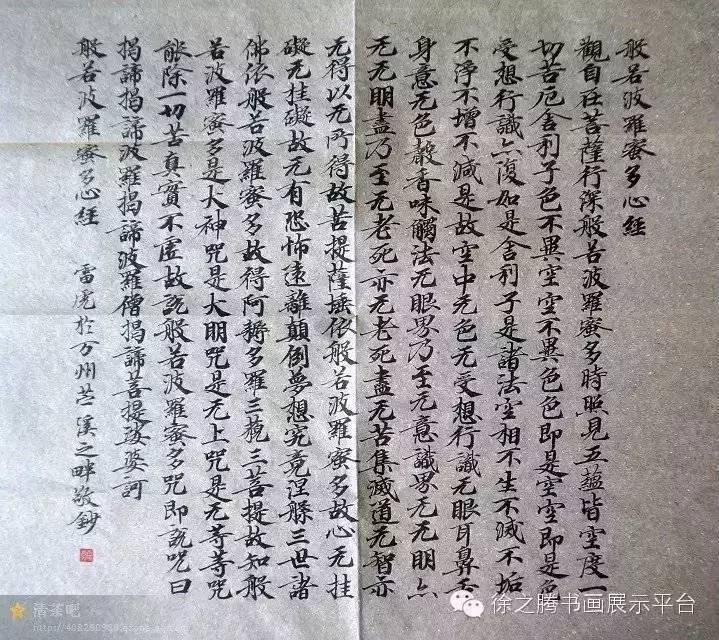 般若波羅蜜多心經
觀自在菩薩行深般若波羅蜜多時照見五蘊皆空度一
切苦厄舍利子色不異空空不異色色即是空空即是色
受想行識亦復如是舍利子是諸法空相不生不滅不垢
不淨不增不減是故空中无色无受想行識无眼耳鼻舌
身意无色聲香味觸法无眼界乃至无意識界无无明亦
无无明盡乃至无老死亦无老死盡无苦集滅道无智亦
无得以无所得故菩提薩埵依般若波羅蜜多故心无挂
礙无挂礙故无有恐怖遠離顛倒夢想究竟涅槃三世諸
佛依般若波羅蜜多故得阿耨多羅三藐三菩提故知般
若波羅蜜多是大神咒是大明咒是无上咒是无等等咒
能除一切苦真實不虛故說般若波羅蜜多咒即說咒曰
揭諦揭諦波羅揭諦波羅僧揭諦菩提薩婆訶
般若波羅蜜多心經 雷虎於万州苎溪之畔敬鈔
清荃吧
徐之腾书画展示平台